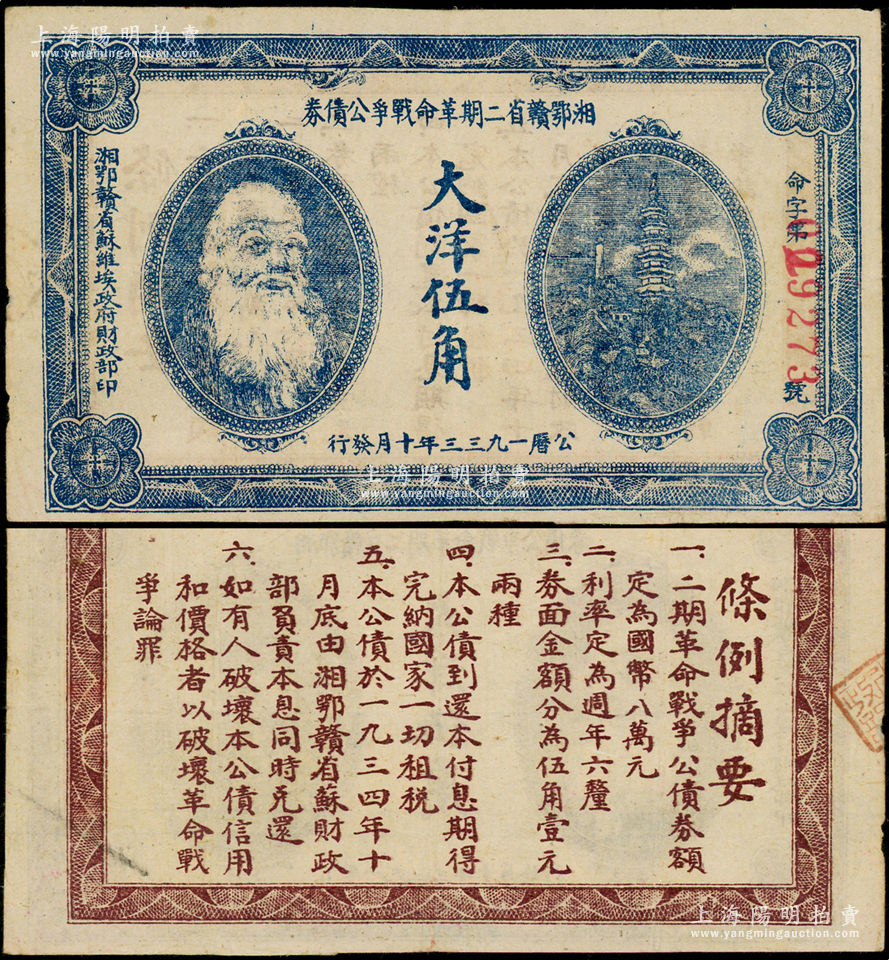 上海陽明拍賣
www.yangmingauction.com
券債公爭戰命革期二省贛鄂湘
湘鄂贛省蘇維埃政府財政部印
大洋伍角
命字第
9273
號
行發月十年三三九一曆公
上海陽明拍賣
www.yangmingauction.com
條例摘要
一、二期革命戰爭公債券額
定為國幣八萬元
二、利率定為週年六釐
三、券面金額分為伍角壹元
兩種
四、本公債到還本付息期得
完納國家一切租税
五、本公債於一九三四年十
月底由湘鄂贛省蘇財政
部負責本息同時兑還
六、如有人破壞本公債信用
和價格者以破壞革命戰
爭論罪
上海陽明拍賣
www.yangmingauction.com